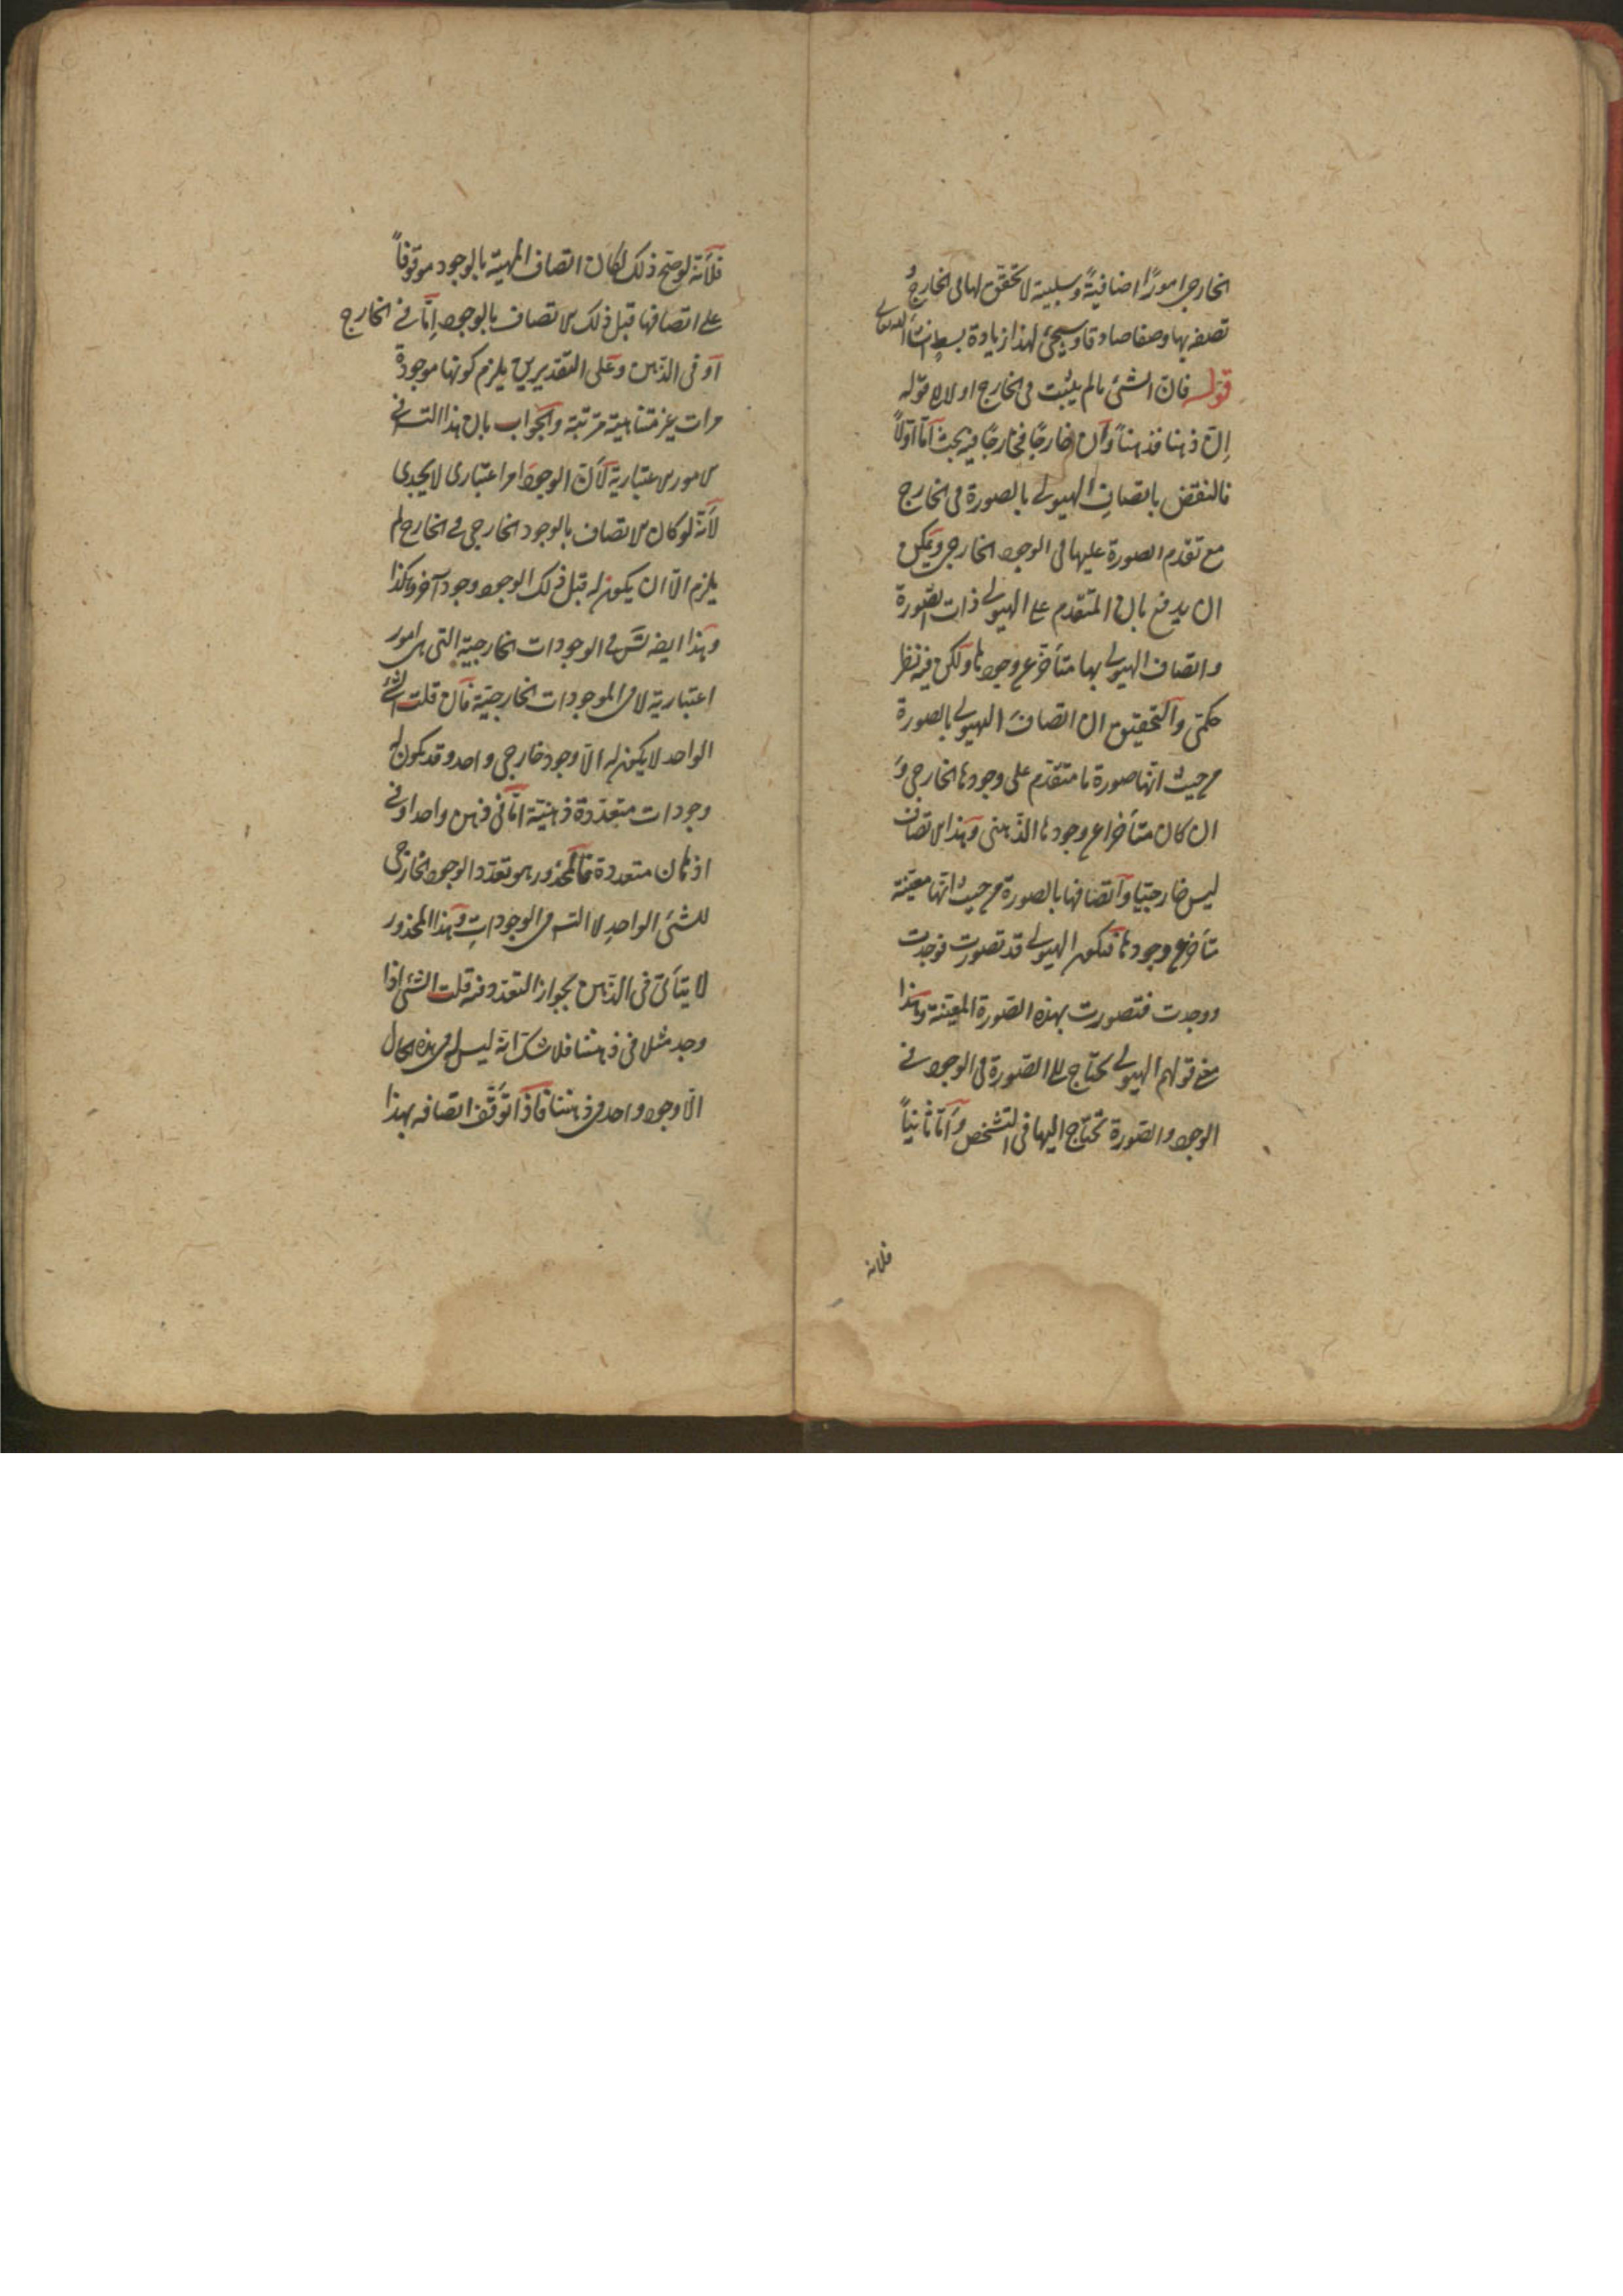 الخارجى امورًا اضافيةً وسلبية لا تحقق لها فى الخارج و
تصفه بها وصفا صادقا وسيجئ لهذا زيادة بسطٍ ان شاء الله تعالى
قوله فان الشئ ما لم يثبت فى الخارج اولا الى قوله
اِن ذهنا فذهناً وان خارجًا فخارجًا فيه بحث اما اولاً
فالنقض باتصاف الهيولى بالصورة فى الخارج
مع تقدم الصورة عليها فى الوجود الخارجى ويمكن
ان يدفع بان المتقدم على الهيولى ذات الصورة
واتصاف الهيولى بها متأخر عن وجودها ولكن فيه نظر
حكمى والتحقيق ان اتصاف الهيولى بالصورة
من حيث انها صورة ما متقدم على وجودها الخارجى و
ان كان متأخرا عن وجودها الذهنى وهذا الاتصاف
ليس خارجيا واتصافها بالصورة من حيث انها معينة
متأخر عن وجودها فتكون الهيولى قد تصورت فوجدت
ووجدت فتصورت بهذه الصورة المعينة وهذا
معنى قولهم الهيولى تحتاج الى الصورة فى الوجود فى
الوجود والصورة تحتاج اليها فى التشخص واما ثانياً
فلانه
فلأنه لو صح ذلك لكان اتصاف المهية بالوجود موقوفاً
على اتصافها قبل ذلك الاتصاف بالوجود اِمّا فى الخارج
او فى الذهن وعلى التقديرين يلزم كونها موجودة
مرات غير متناهية مترتبة والجواب بان هذا التس فى
الامور الاعتبارية لأن الوجود امر اعتبارى لا يجدى
لأنه لو كان الاتصاف بالوجود الخارجى فى الخارج لم
يلزم الا ان يكون له قبل ذلك الوجود وجود آخر وهكذا
وهذا ايضا تس فى الوجودات الخارجية التى هى امور
اعتبارية لا فى الموجودات الخارجية فان قلت الشئ
الواحد لا يكون له الا وجود خارجى واحد وقد يكون له
وجودات متعددة ذهنية اما فى ذهن واحد او فى
اذهان متعددة فالمحذور هو تعدد الوجود الخارجى
للشئ الواحد لا التس فى الوجودات وهذا المحذور
لا يتأتى فى الذهن لجواز التعدد فيه قلت الشئ اذا
وجد مثلا فى ذهننا فلا شك انه ليس له فى هذه الحال
الا وجود واحد فى ذهننا فاذا توقف اتصافه بهذا